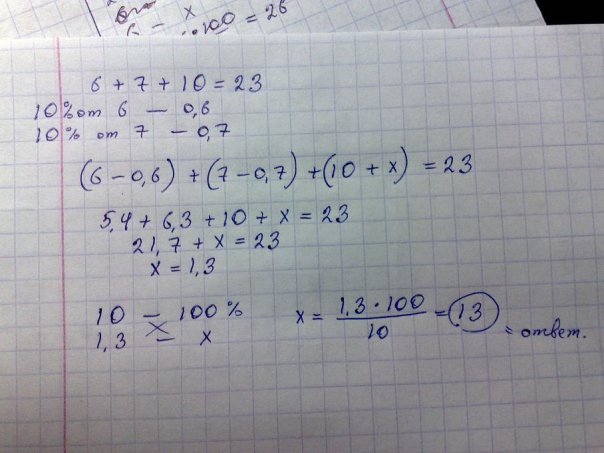 6 - x
100 = 26
6 + 7 + 10 = 23
10% от 6 — 0,6
10% от 7 — 0,7
(6 - 0,6) + (7 - 0,7) + (10 + x) = 23
5,4 + 6,3 + 10 + x = 23
21,7 + x = 23
x = 1,3
10 — 100% x = 1,3 · 100 / 10 = 13 = ответ.
1,3 — x